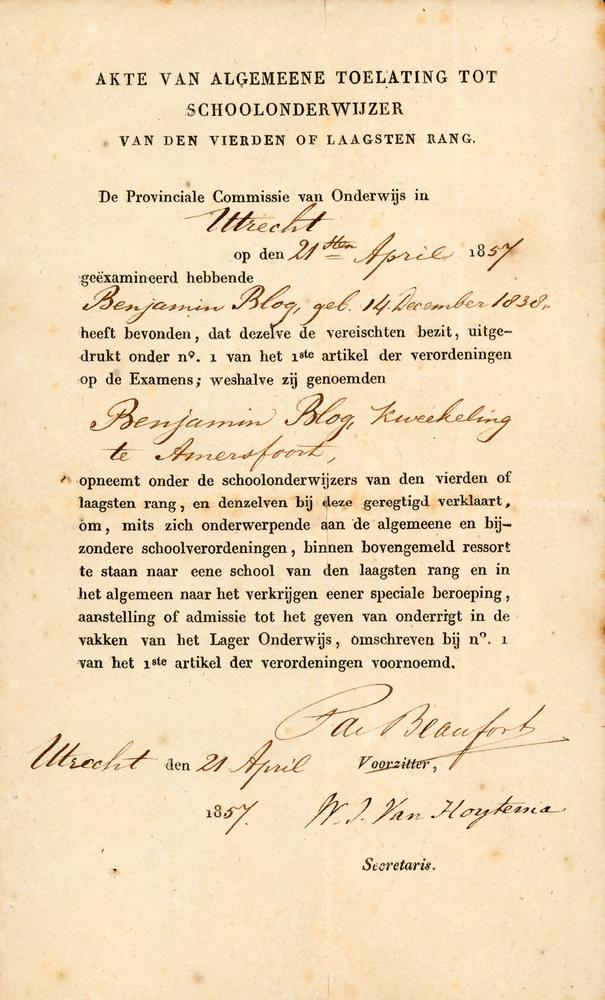 AKTE VAN ALGEMEENE TOELATING TOT
SCHOOLONDERWIJZER
VAN DEN VIERDEN OF LAAGSTEN RANG.
De Provinciale Commissie van Onderwijs in
Utrecht
op den 21sten April 1857
geëxamineerd hebbende
Benjamin Blog, geb. 14 December 1838,
heeft bevonden, dat dezelve de vereischten bezit, uitge-
drukt onder nº. 1 van het 1ste artikel der verordeningen
op de Examens; weshalve zij genoemden
Benjamin Blog, Kweekeling
te Amersfoort,
opneemt onder de schoolonderwijzers van den vierden of
laagsten rang, en denzelven bij deze geregtigd verklaart,
om, mits zich onderwerpende aan de algemeene en bij-
zondere schoolverordeningen, binnen bovengemeld ressort
te staan naar eene school van den laagsten rang en in
het algemeen naar het verkrijgen eener speciale beroeping,
aanstelling of admissie tot het geven van onderrigt in de
vakken van het Lager Onderwijs, omschreven bij nº. 1
van het 1ste artikel der verordeningen voornoemd.
de Beaufort
Utrecht den 21 April Voorzitter,
1857. W. J. Van Hoytema
Secretaris.